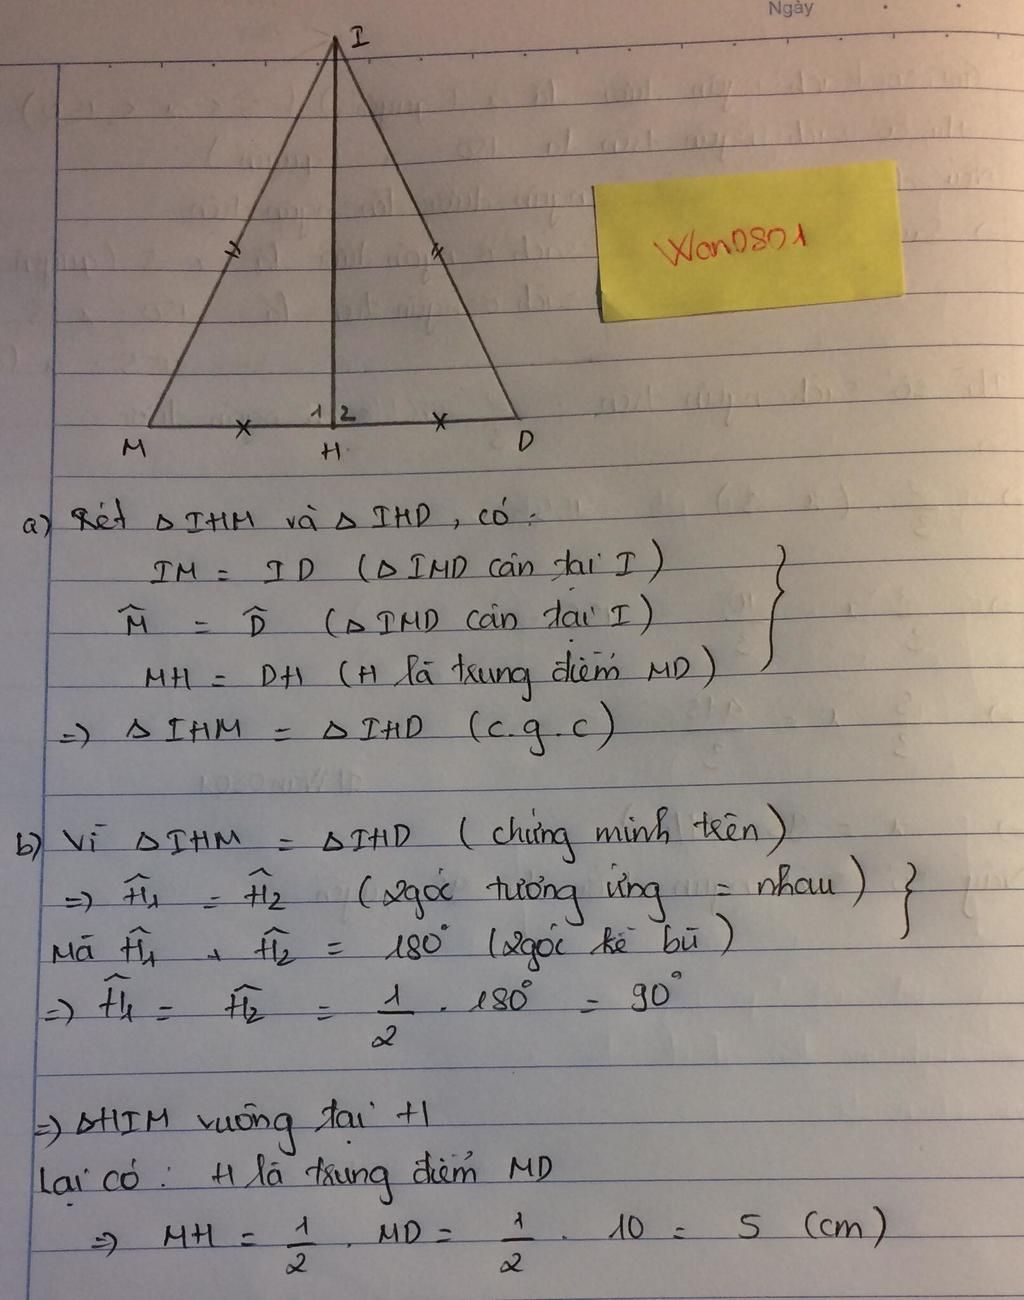 Ngày
I
Won0801
1 2
M H D
a) Xét △IHM và △IHD, có:
IM = ID (△IMD cân tại I)
M̂ = D̂ (△IMD cân tại I)
MH = DH (H là trung điểm MD)
=> △IHM = △IHD (c.g.c)
b) Vì △IHM = △IHD (chứng minh trên)
=> Ĥ1 = Ĥ2 (2 góc tương ứng = nhau)
Mà Ĥ1 + Ĥ2 = 180° (2 góc kề bù)
=> Ĥ1 = Ĥ2 = 1/2 . 180° = 90°
=> △HIM vuông tại H
Lại có: H là trung điểm MD
=> MH = 1/2 . MD = 1/2 . 10 = 5 (cm)